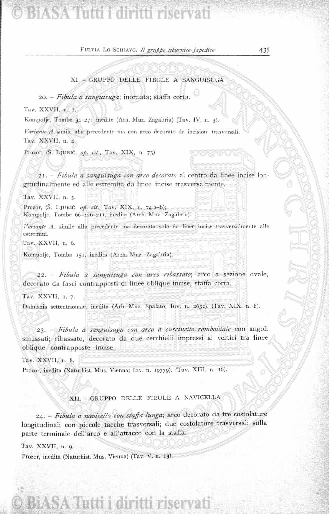 © BiASA Tutti i diritti riservati
FULVIA LO SCHIAVO, Il gruppo liburnico-japodico 435
XI - GRUPPO DELLE FIBULE A SANGUISUGA
20. – Fibula a sanguisuga: inornata; staffa corta.
Tav. XXVII, n.
Kompolje, Tombe inedite (Arh. Muz. Zagabria) (Tav. IV, n.
Variante A simile alla precedente ma con arco decorato da incisioni trasversali.
Tav. XXVII, n. 4.
Prozor (S. LJUBIĆ, op. cit., Tav. XIX, n. 73)
21. – Fibula a sanguisuga con arco decorato al centro da linee incise lon-
gitudinalmente ed alle estremità da linee incise trasversalmente.
Tav. XXVII, n. 5.
Prozor (S. LJUBIĆ, op. cit., Tav. XIX,
Kompolje, Tombe inedite (Arh. Muz. Zagabria).
Variante A, simile alla precedente ma decorata solo da linee incise trasversalmente alle
estremità.
Tav. XXVII, n. 6.
Kompolje, Tomba 151, inedita (Arh. Muz. Zagabria).
22. – Fibula a sanguisuga con arco ribassato; arco a sezione ovale,
decorato da fasci contrapposti di linee oblique incise, staffa corta.
Tav. XXVII, n. 7.
Dalmazia settentrionale, inedita (Arh. Muz. Spalato, Inv. n. (Tav. XIX, n. 8).
23. – Fibula a sanguisuga con arco a curvatura romboidale con angoli
smussati; ribassato, decorato da due cerchielli impressi ai vertici tra linee
oblique contrapposte incise.
Tav. XXVII, n. 8.
Prozor, inedita (Naturhist. Mus. Vienna, Inv. n. (Tav. XIII, n. 16).
XII - GRUPPO DELLE FIBULE A NAVICELLA
24. – Fibula a navicella con staffa lunga; arco decorato da tre costolature
longitudinali con piccole tacche trasversali; due costolature trasversali sulla
parte terminale dell'arco e all'attacco con la staffa.
Tav. XXVII, n. 9.
Prozor, inedita (Naturhist. Mus. Vienna) (Tav. V, n. 13).
© BiASA Tutti i diritti riservati